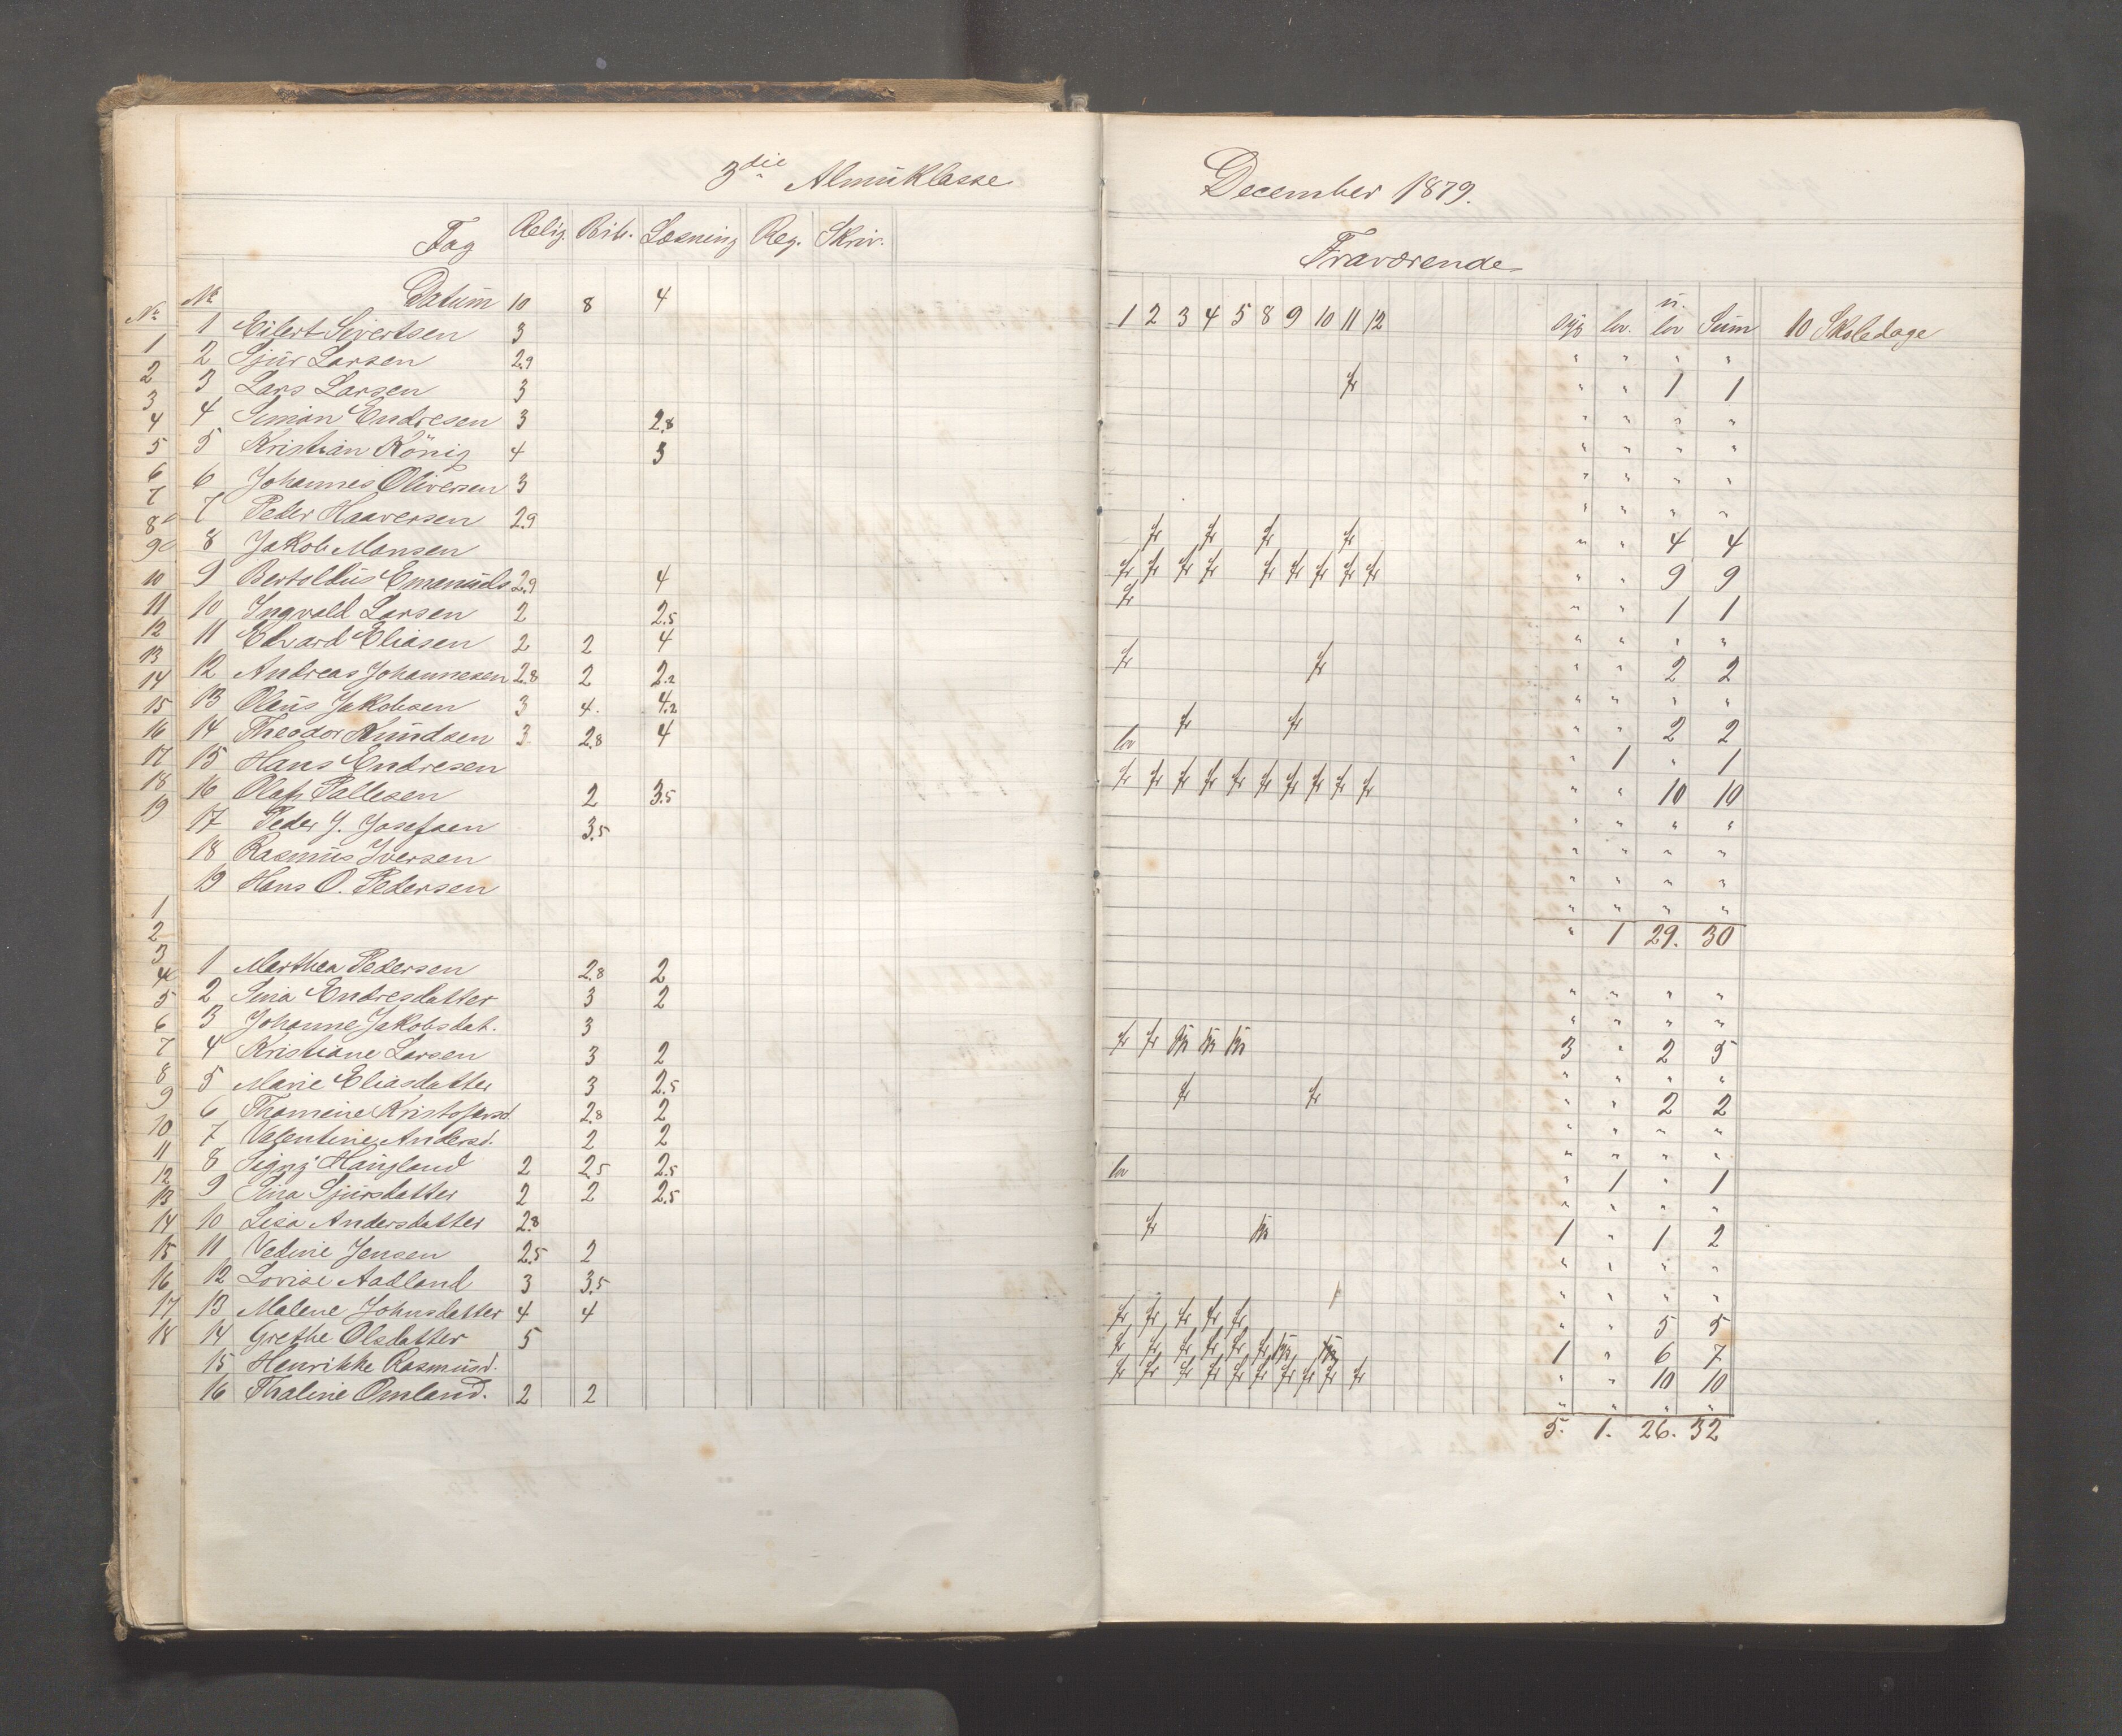 3die Almuklasse
Fag Relig. Bib. Læsning Reg. Skriv.
No No Datum 10 8 4
1 1 Eilert Sivertsen 3
2 2 Sjur Larsen 2.9
3 3 Lars Larsen 3
4 4 Simon Endresen 3 2.8
5 5 Kristian König 4 3
6 6 Johannes Oliversen 3
7 7 Peder Haaversen 2.9
8 8 Jakob Monsen
9 9 Bertoldus Emanuels 2.9 4
10 10 Ingvald Larsen 2 2.5
11 11 Edvard Eliasen 2 2 4
12 12 Andreas Johannesen 2.8 2 2.2
13 13 Olaus Jakobsen 3 4. 4.2
14 14 Theodor Knudsen 3 2.8 4
15 15 Hans Endresen
16 16 Olaf Pallesen 2 3.5
17 17 Peder J. Josefsen 3.5
18 18 Rasmus Iversen
19 19 Hans O. Pedersen
1 1 Marthea Pedersen 2.8 2
2 2 Sina Endresdatter 3 2
3 3 Johanne Jakobsdat. 3
4 4 Kristiane Larsen 3 2
5 5 Marie Eliasdatter 3 2.5
6 6 Thomine Kristofersd. 2.8 2
7 7 Valentine Andersd. 2 2
8 8 Signy Haugland 2 2.5 2.5
9 9 Sina Sjursdatter 2 2 2.5
10 10 Lisa Andersdatter 2.8
11 11 Vedine Jensen 2.5 2
12 12 Lovise Aadland 3 3.5
13 13 Malene Johnsdatter 4 4
14 14 Grethe Olsdatter 5
15 15 Henrikke Rasmusd.
16 16 Thaline Omland. 2 2
17
18
December 1879.
Fraværende
1 2 3 4 5 8 9 10 11 12 syg lov. u. lov Sum 10 Skoledage
" " " "
fr " " 1 1
" " " "
" " " "
" " " "
" " " "
fr fr fr fr " " 4 4
fr fr fr fr fr fr fr fr fr " " 9 9
fr " " 1 1
" " " "
fr fr " " 2 2
" " " "
fr fr " " 2 2
lov " 1 " 1
fr fr fr fr fr fr fr fr fr fr " " 10 10
" " " "
" " " "
" " " "
" " " "
" 1 29. 30
" " " "
" " " "
fr fr 3 " 2 5
" " " "
fr fr " " 2 2
" " " "
" " " "
lov " 1 " 1
" " " "
fr 1 " 1 2
" " " "
" " " "
fr fr fr fr fr " " 5 5
fr fr fr fr fr fr 1 " 6 7
fr fr fr fr fr fr fr fr fr fr " " 10 10
" " " "
5. 1. 26. 32